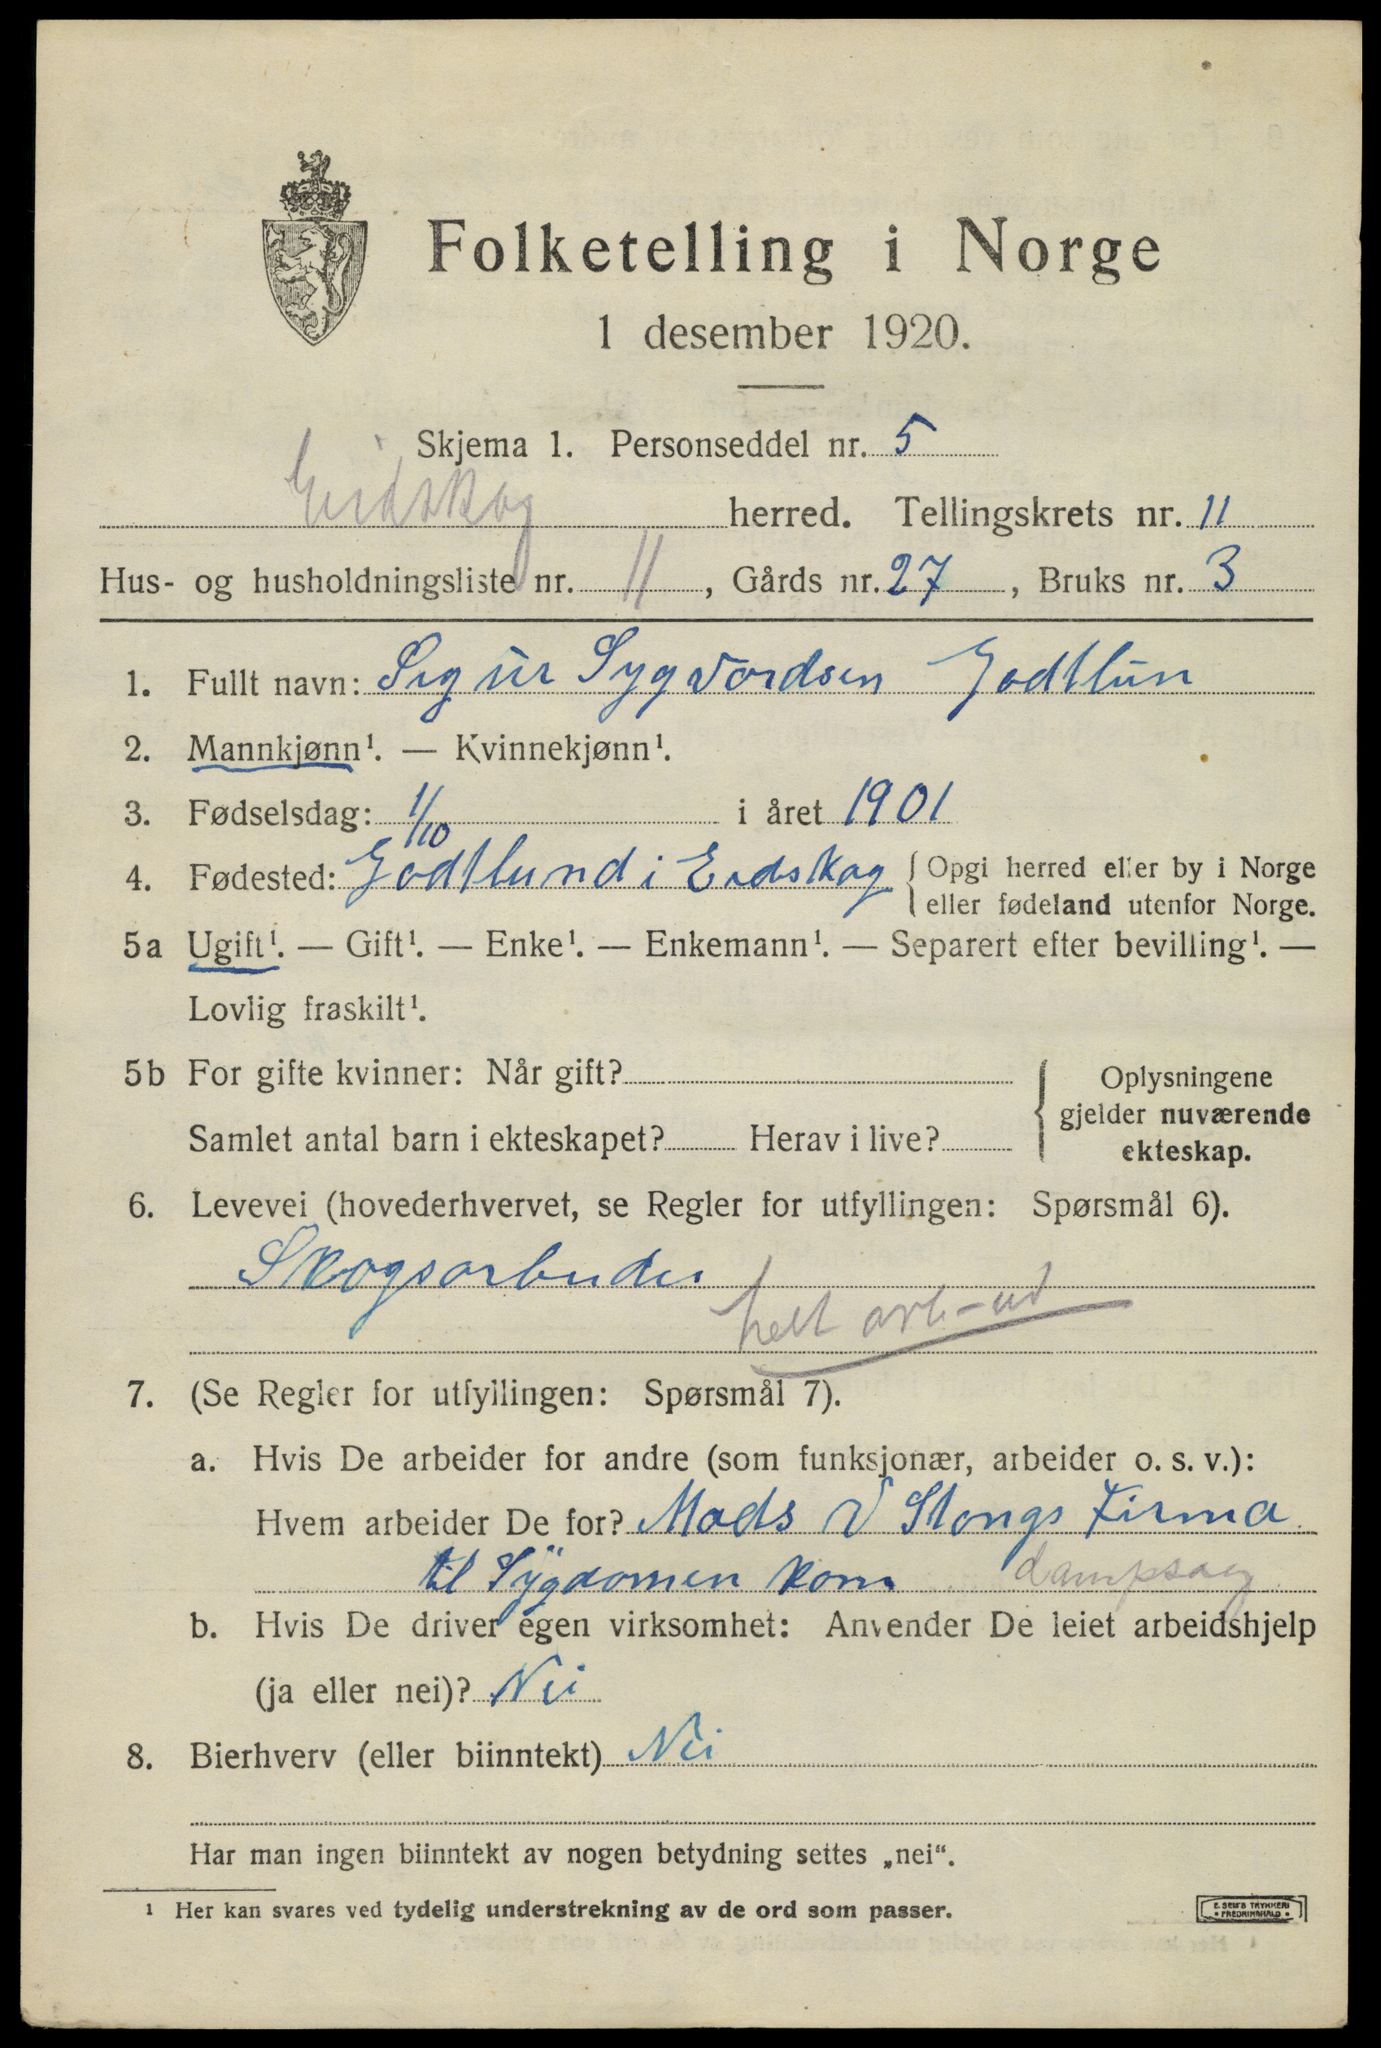 Folketelling i Norge
1 desember 1920.
Skjema 1. Personseddel nr. 5
Eidskog herred. Tellingskrets nr. 11
Hus- og husholdningsliste nr. 11, Gårds nr. 27, Bruks nr. 3
1. Fullt navn: Sigur Sygvordsen Godtlun
2. Mannkjønn¹. — Kvinnekjønn¹.
3. Fødselsdag: 1/10 i året 1901
4. Fødested: Godtlund i Eidskog { Opgi herred eller by i Norge
eller fødeland utenfor Norge.
5a Ugift¹. — Gift¹. — Enke¹. — Enkemann¹. — Separert efter bevilling¹. —
Lovlig fraskilt¹.
5b For gifte kvinner: Når gift? { Oplysningene
gjelder nuværende
Samlet antal barn i ekteskapet? Herav i live?
ekteskap.
6. Levevei (hovederhvervet, se Regler for utfyllingen: Spørsmål 6).
Skogsarbeider
helt arb-ud
7. (Se Regler for utfyllingen: Spørsmål 7).
a. Hvis De arbeider for andre (som funksjonær, arbeider o. s. v.):
Hvem arbeider De for? Mads V Stongs Firma
til Sygdomen kom dampsag
b. Hvis De driver egen virksomhet: Anvender De leiet arbeidshjelp
(ja eller nei)? Nei
8. Bierhverv (eller biinntekt) Nei
Har man ingen biinntekt av nogen betydning settes „nei“.
¹ Her kan svares ved tydelig understrekning av de ord som passer.
E. SEM'S TRYKKERI
• FREDRIKSHALD •